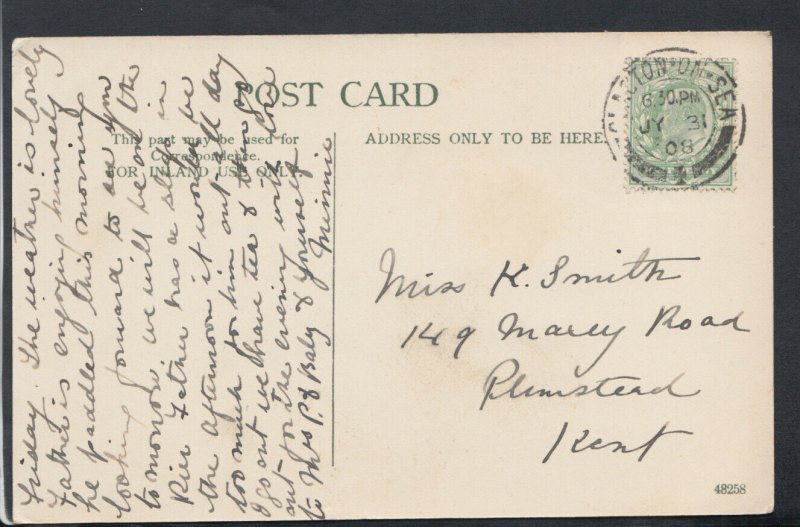 POST CARD
This part may be used for
Correspondence.
FOR INLAND USE ONLY.
ADDRESS ONLY TO BE HERE.
CLACTON-ON-SEA
6.30.PM
JY 31
08
Friday. The weather is lovely
Father is enjoying himself
he paddled this morning
looking forward to see you
to morrow we will be on the
Pier Father has a sleep in
the afternoon it would be
too much for him out all day
I go out we have tea & then go
out for the evening with love
to Mrs P. & Baby & yourself
Minnie
Miss K. Smith
149 Road
Plumstead
Kent
48258